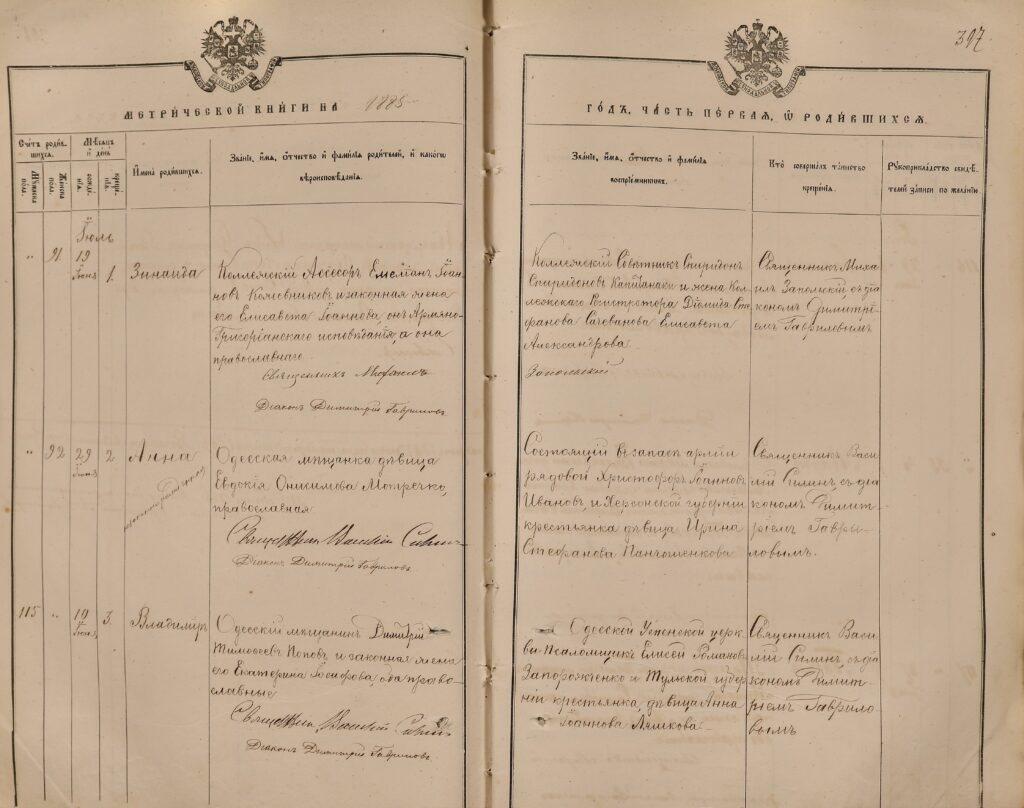 397
МЕТРИ́ЧЕСКОЙ КНИ́ГИ НА 1885
ГО́ДЪ, ЧА́СТЬ ПЕ́РВАЯ, Ѡ РОДИ́ВШИХСЯ.
Счетъ роди́в-
шихся.
Мѣсяцъ
и день
Мужеска
пола.
Женска
пола.
рожде́-
нія.
креще́-
нія.
Имена роди́вшихся.
Зва́ніе, и́мя, о́тчество и фами́лія роди́телей, и како́го
вѣроисповѣ́данія.
Зва́ніе, и́мя, о́тчество и фами́лія
воспріе́мниковъ.
Кто соверша́лъ та́инство
креще́нія.
Рукоприкла́дство свидѣ́-
телей за́писи по жела́нію
Іюль
" 91 19 Іюня 1. Зинаида
Коллежскій Ассесоръ Емеліанъ Іоан-
новъ Кожевниковъ и законная жена
его Елисавета Іоаннова, онъ Армяно-
Григоріанскаго исповѣданія, а она
православнаго
Священникъ Михаилъ
Діаконъ Димитрій Гавриловъ
Коллежскій Совѣтникъ Спиридонъ
Спиридоновъ Капитанаки и жена Кол-
лежскаго Регистратора Діомида Сте-
фанова Елисавета
Александрова.
Запольскій
Священникъ Миха-
илъ Запольскій, съ діа-
кономъ Димитрі-
емъ Гавриловымъ
" 92 29 Іюня 2 Анна
Одесская мѣщанка дѣвица
Евдокія Онисимова Мотречко,
православная
Священникъ Василій Силинъ
Діаконъ Димитрій Гавриловъ
Состоящій въ запасѣ арміи
рядовой Христофоръ Іоанновъ
Ивановъ, и Херсонской губерніи
крестьянка дѣвица Ирина
Стефанова Панчошенкова
Священникъ Васи-
лій Силинъ, съ діа-
кономъ Димит-
ріемъ Гаври-
ловымъ.
115 " 19 Іюня 3. Владимиръ
Одесскій мѣщанинъ Димитрій
Тимоѳеевъ Поповъ и законная жена
его Екатерина Іосифова, оба право-
славные
Священникъ Василій Силинъ
Діаконъ Димитрій Гавриловъ
Одесской Успенской церк-
ви Псаломщикъ Елисей Романовъ
Запорожченко и Тульской губер-
ніи крестьянка, дѣвица Анна
Іоаннова Ляшкова
Священникъ Васи-
лій Силинъ, съ діа-
кономъ Димит-
ріемъ Гаврило-
вымъ